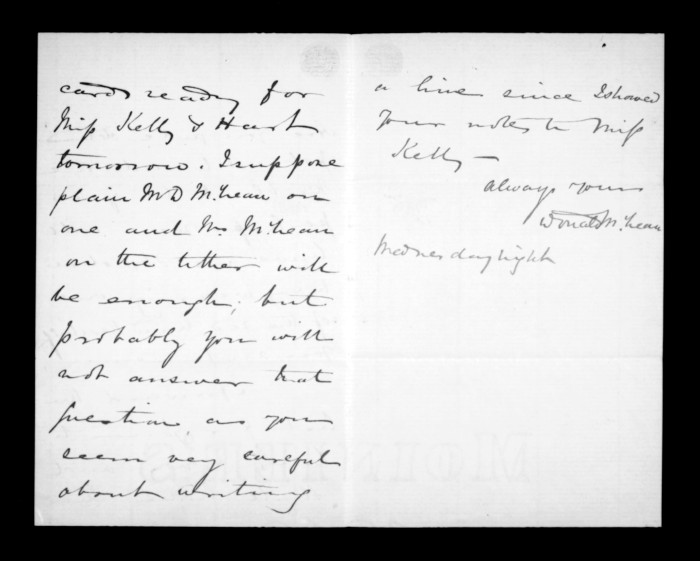 cards ready for
Miss Kelly & Hart
tomorrow. I suppose
plain Mr D McLean on
one and Mrs McLean
on the tother will
be enough, but
probably you will
not answer that
question, as you
seem very careful
about writing
a line since I showed
your notes to Miss
Kelly —
always yours
Donald McLean
Wednesday night